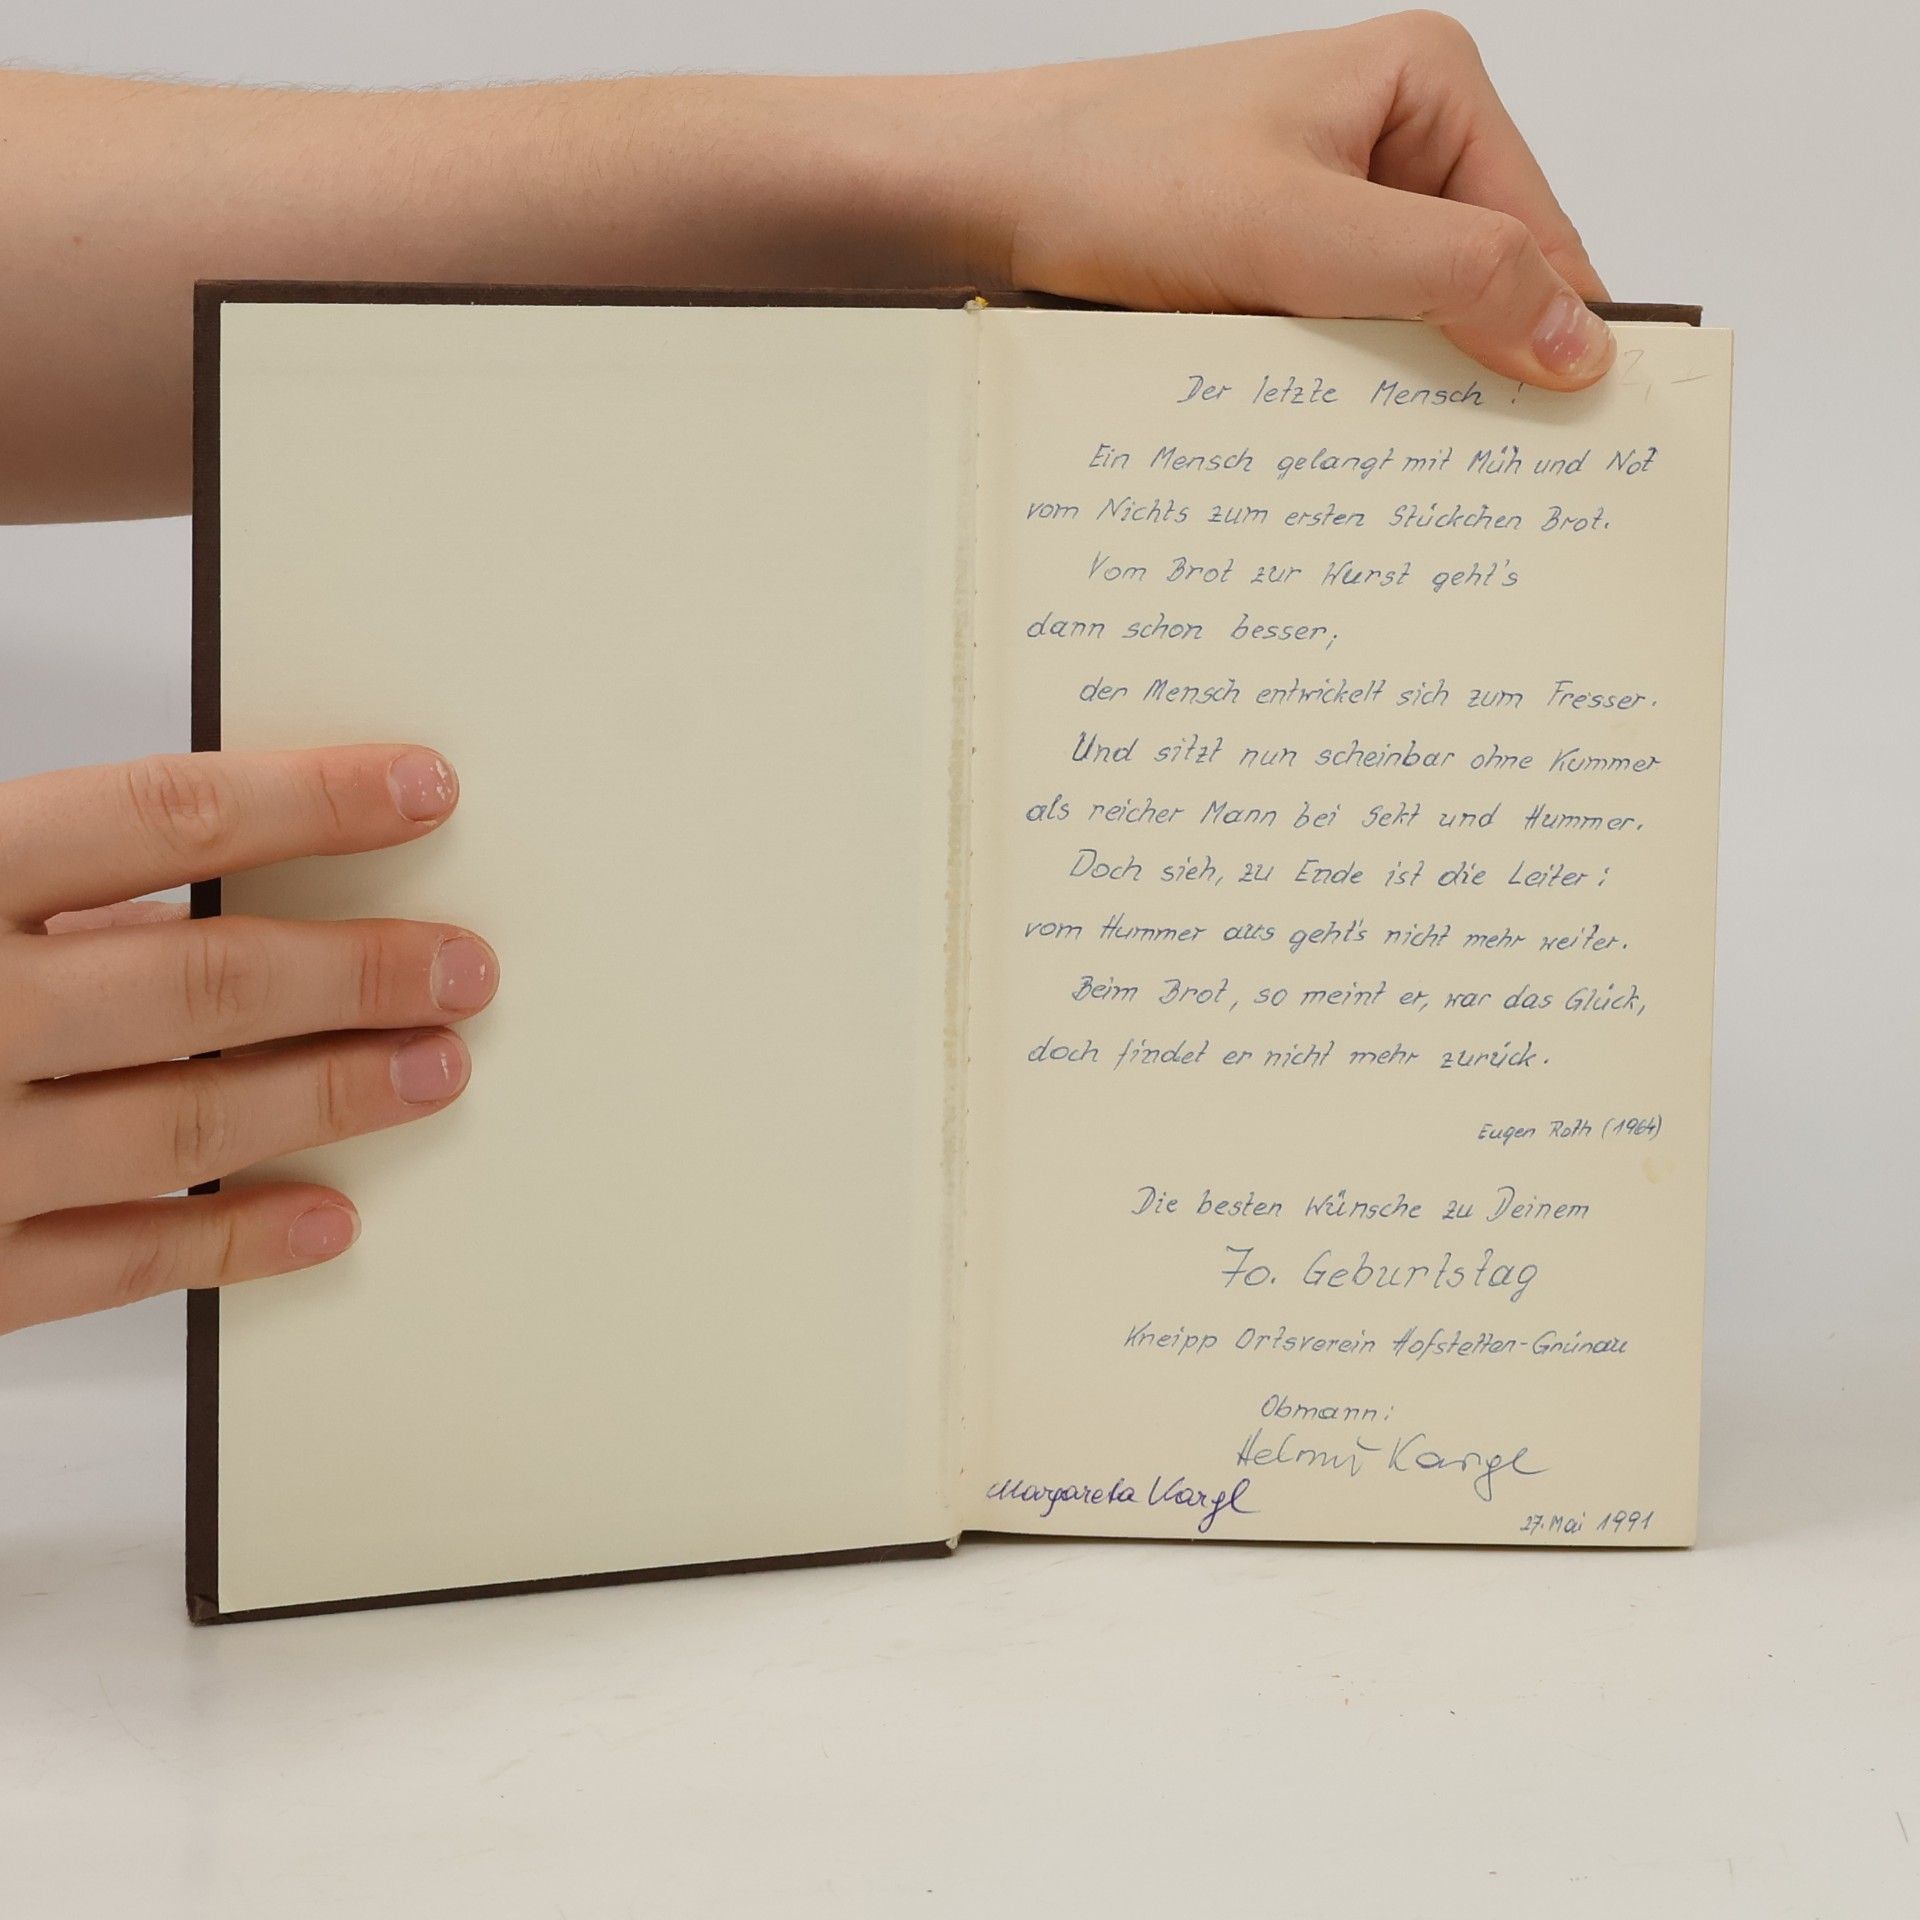 Der letzte Mensch !
Ein Mensch gelangt mit Müh und Not
vom Nichts zum ersten Stückchen Brot.
Vom Brot zur Wurst geht's
dann schon besser;
der Mensch entwickelt sich zum Fresser.
Und sitzt nun scheinbar ohne Kummer
als reicher Mann bei Sekt und Hummer.
Doch sieh, zu Ende ist die Leiter:
vom Hummer aus geht's nicht mehr weiter.
Beim Brot, so meint er, war das Glück,
doch findet er nicht mehr zurück.
Eugen Roth (1964)
Die besten Wünsche zu Deinem
70. Geburtstag
Kneipp Ortsverein Hofstetten-Grünau
Obmann:
Helmut Kargl
Margareta Kargl
27. Mai 1991